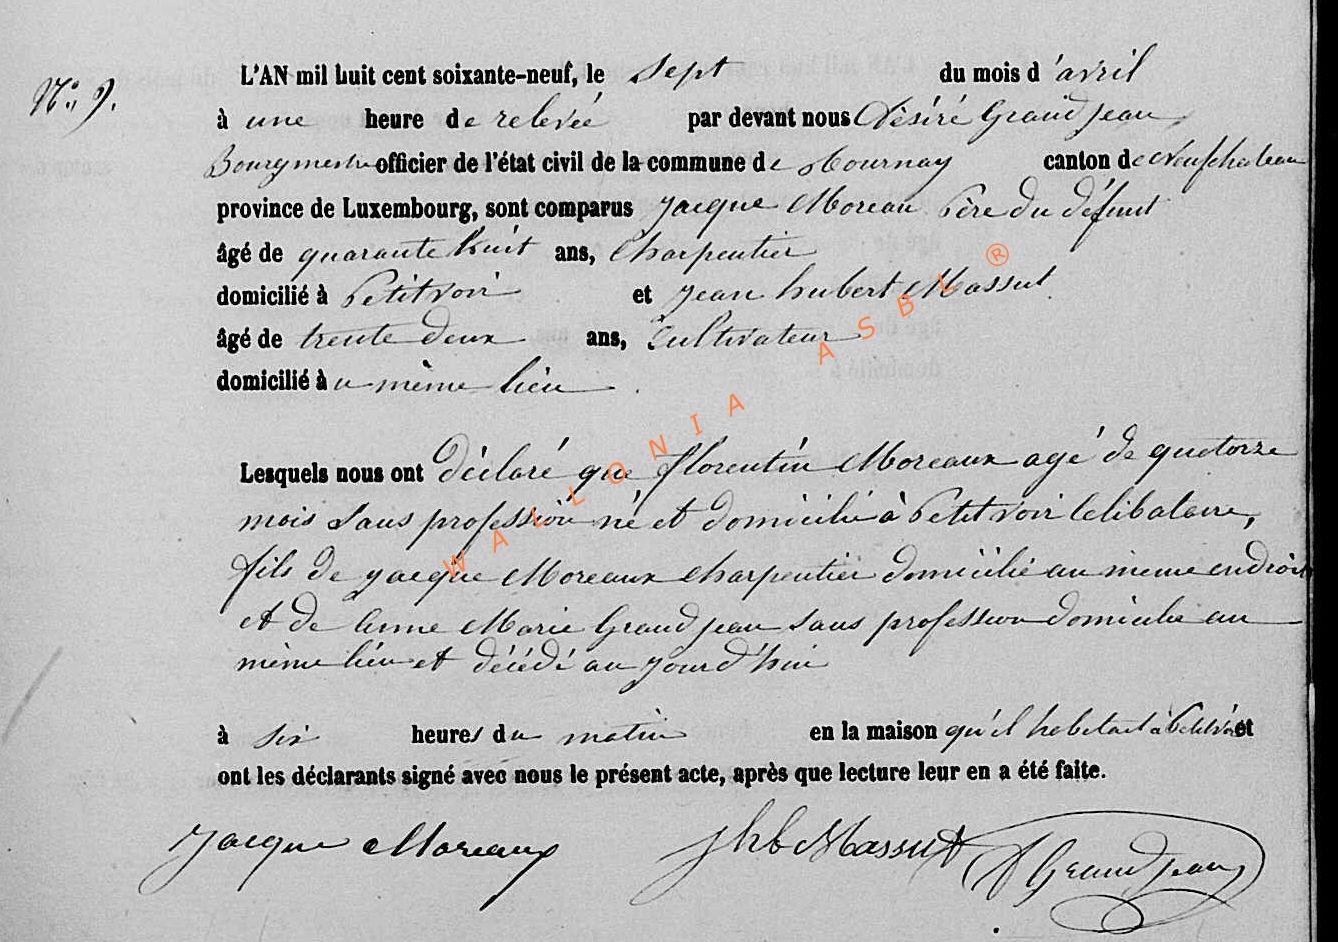 N° 9.
L'AN mil huit cent soixante-neuf, le sept du mois d'avril
à une heure de relevée par devant nous Désiré Grandjean
Bourgmestre officier de l'état civil de la commune de Tournay canton de Neufchateau
province de Luxembourg, sont comparus Jacque Moreau Père du défunt
âgé de quarante huit ans, Charpentier
domicilié à Petitvoir et Jean hubert Massut
âgé de trente deux ans, Cultivateur
domicilié à u même lieu
Lesquels nous ont déclaré que florentin Moreaux agé de quatorze
mois sans profession né et domicilié à Petitvoir Celibataire,
fils de Jacque Moreaux charpentier domicilié au même endroit
et de Anne Marie Grandjean sans profession domicilié au
même lieu et décédé au jourd'hui
à six heures du matin en la maison qu'il habitait à Petitvoir et
ont les déclarants signé avec nous le présent acte, après que lecture leur en a été faite.
Jacque Moreaux Jhb Massut D Grandjean
WALLONIA ASBL ®